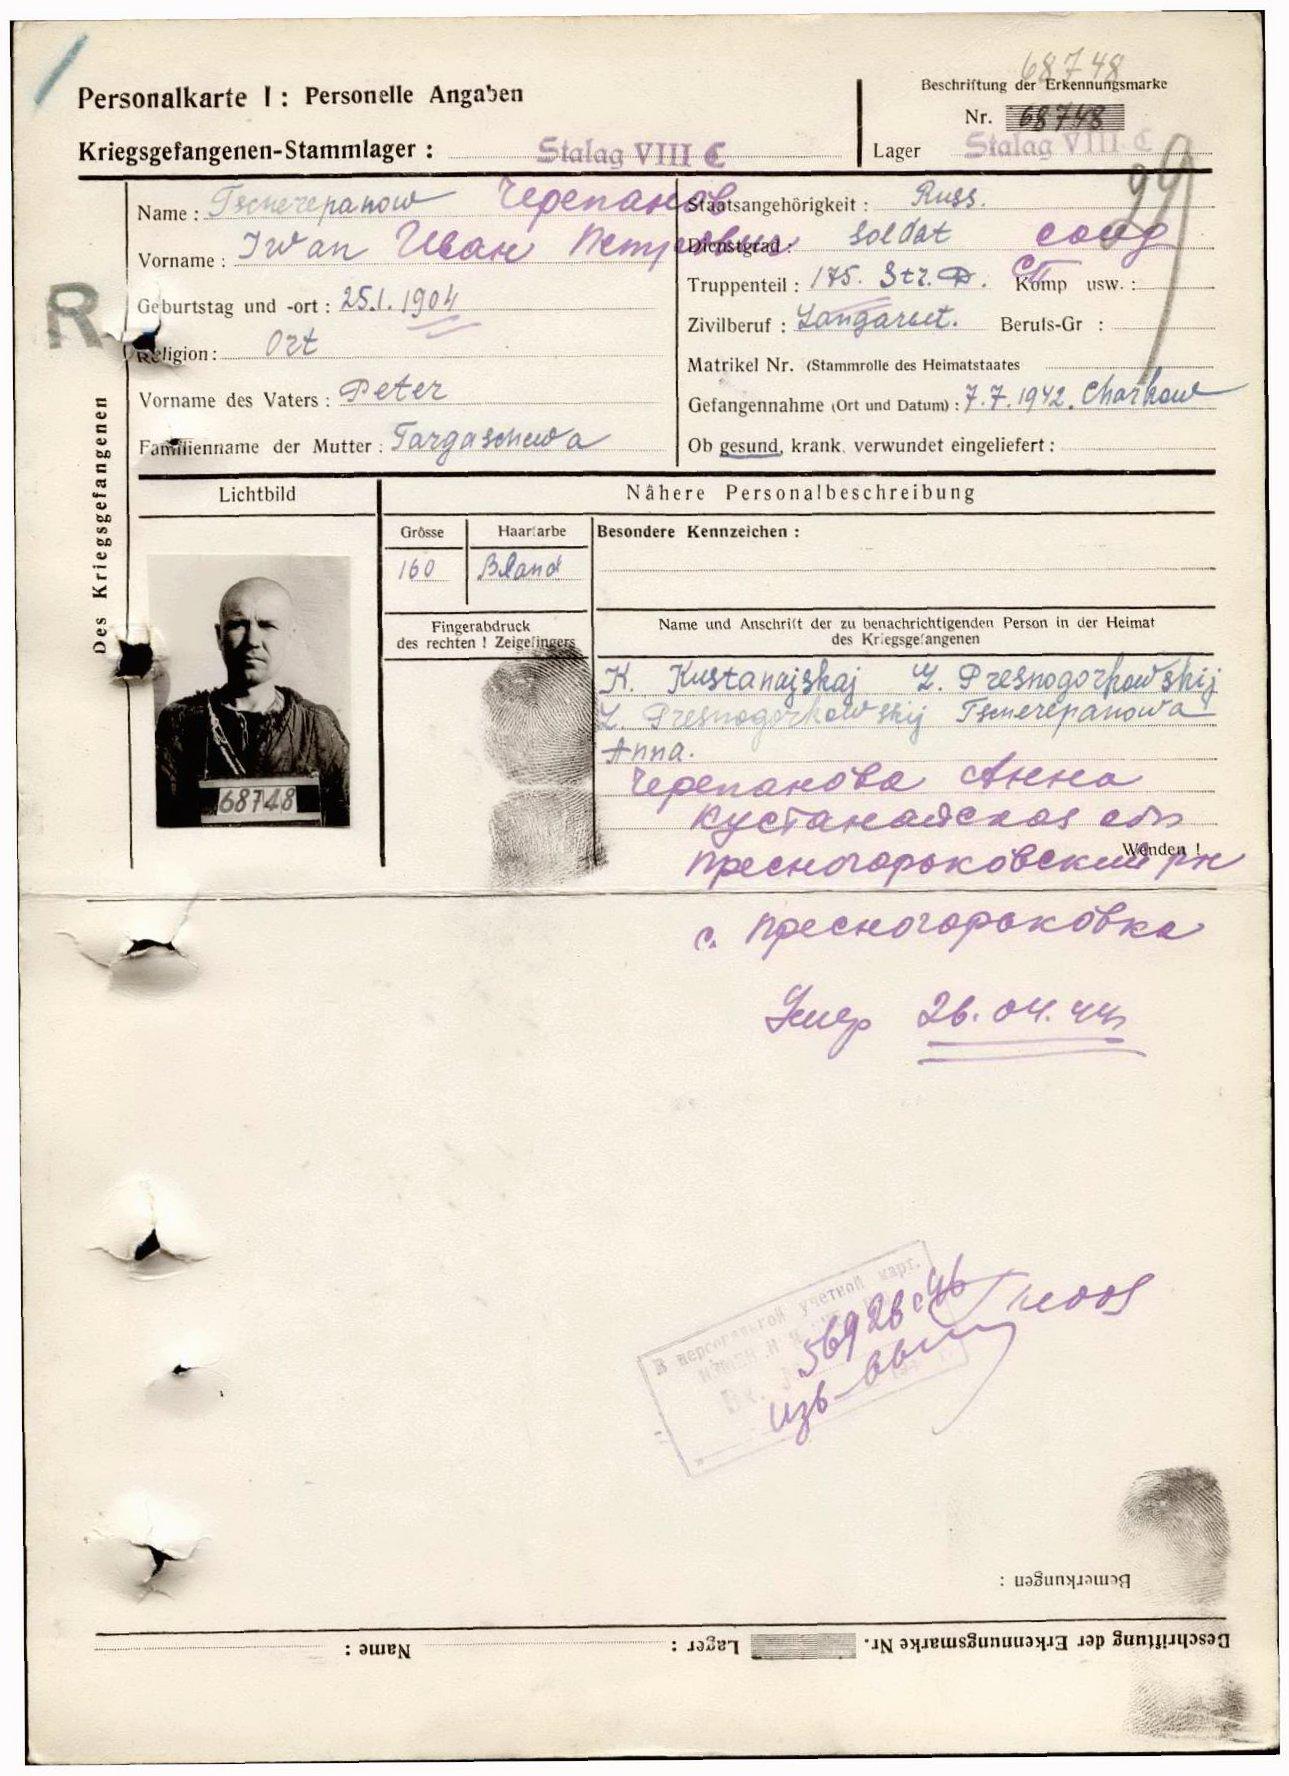 68748
Personalkarte I: Personelle Angaben
Beschriftung der Erkennungsmarke
Nr. 68748
Kriegsgefangenen-Stammlager: Stalag VIII C
Lager Stalag VIII C
Des Kriegsgefangenen
R
Name: Tscherepanow Черепанов
Vorname: Iwan Иван Петрович
Geburtstag und -ort: 25.1.1904
Religion: Ort
Vorname des Vaters: Peter
Familienname der Mutter: Targaschewa
Staatsangehörigkeit: Russ.
Dienstgrad: Soldat солд
Truppenteil: 175. Str. D. Komp usw.:
Zivilberuf: Beruls-Gr :
Matrikel Nr. (Stammrolle des Heimatstaates
Gefangennahme (Ort und Datum): 7.7.1942. Charkow
Ob gesund, krank, verwundet eingeliefert:
Lichtbild
Nähere Personalbeschreibung
Grösse
Haarfarbe
160
Bland
Besondere Kennzeichen:
Fingerabdruck
des rechten ! Zeigefingers
Name und Anschrift der zu benachrichtigenden Person in der Heimat
des Kriegsgefangenen
K. Kustanajskaj Presnogorkowskij
Presnogorkowskij Tscherepanowa
Anna.
Черепанова Анна
Кустанайская обл
Пресногорьковский рн
Wenden !
с. Пресногорьковка
68748
Умер 26.04.44
В персональной учетной карт.
56926с46
изв
Bemerkungen :
Beschriftung der Erkennungsmarke Nr. Lager : Name :